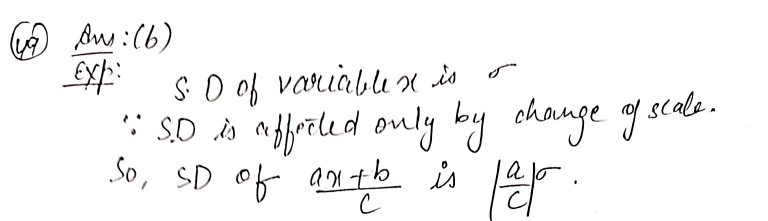 49 Ans: (b)
Exp:
S.D of variable x is σ
∵ S.D is affected only by change of scale.
So, SD of (ax+b)/c is |a/c|σ.